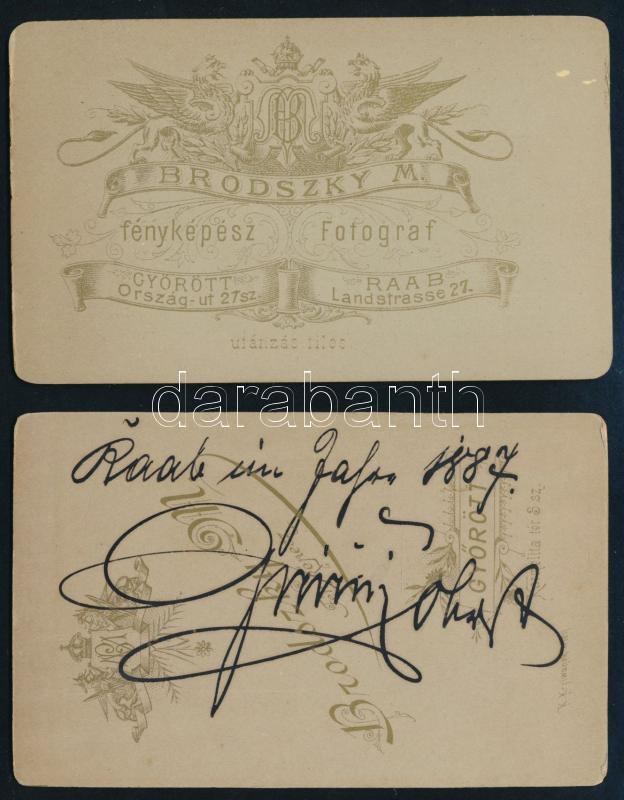 BRODSZKY M.
fényképész Fotograf
GYŐRÖTT
Ország-ut 27 sz.
RAAB
Landstrasse 27.
utánzás tilos.
darabanth
Raab im Jahre 1887.
Brodszky
GYŐRÖTT
tér 3 sz.